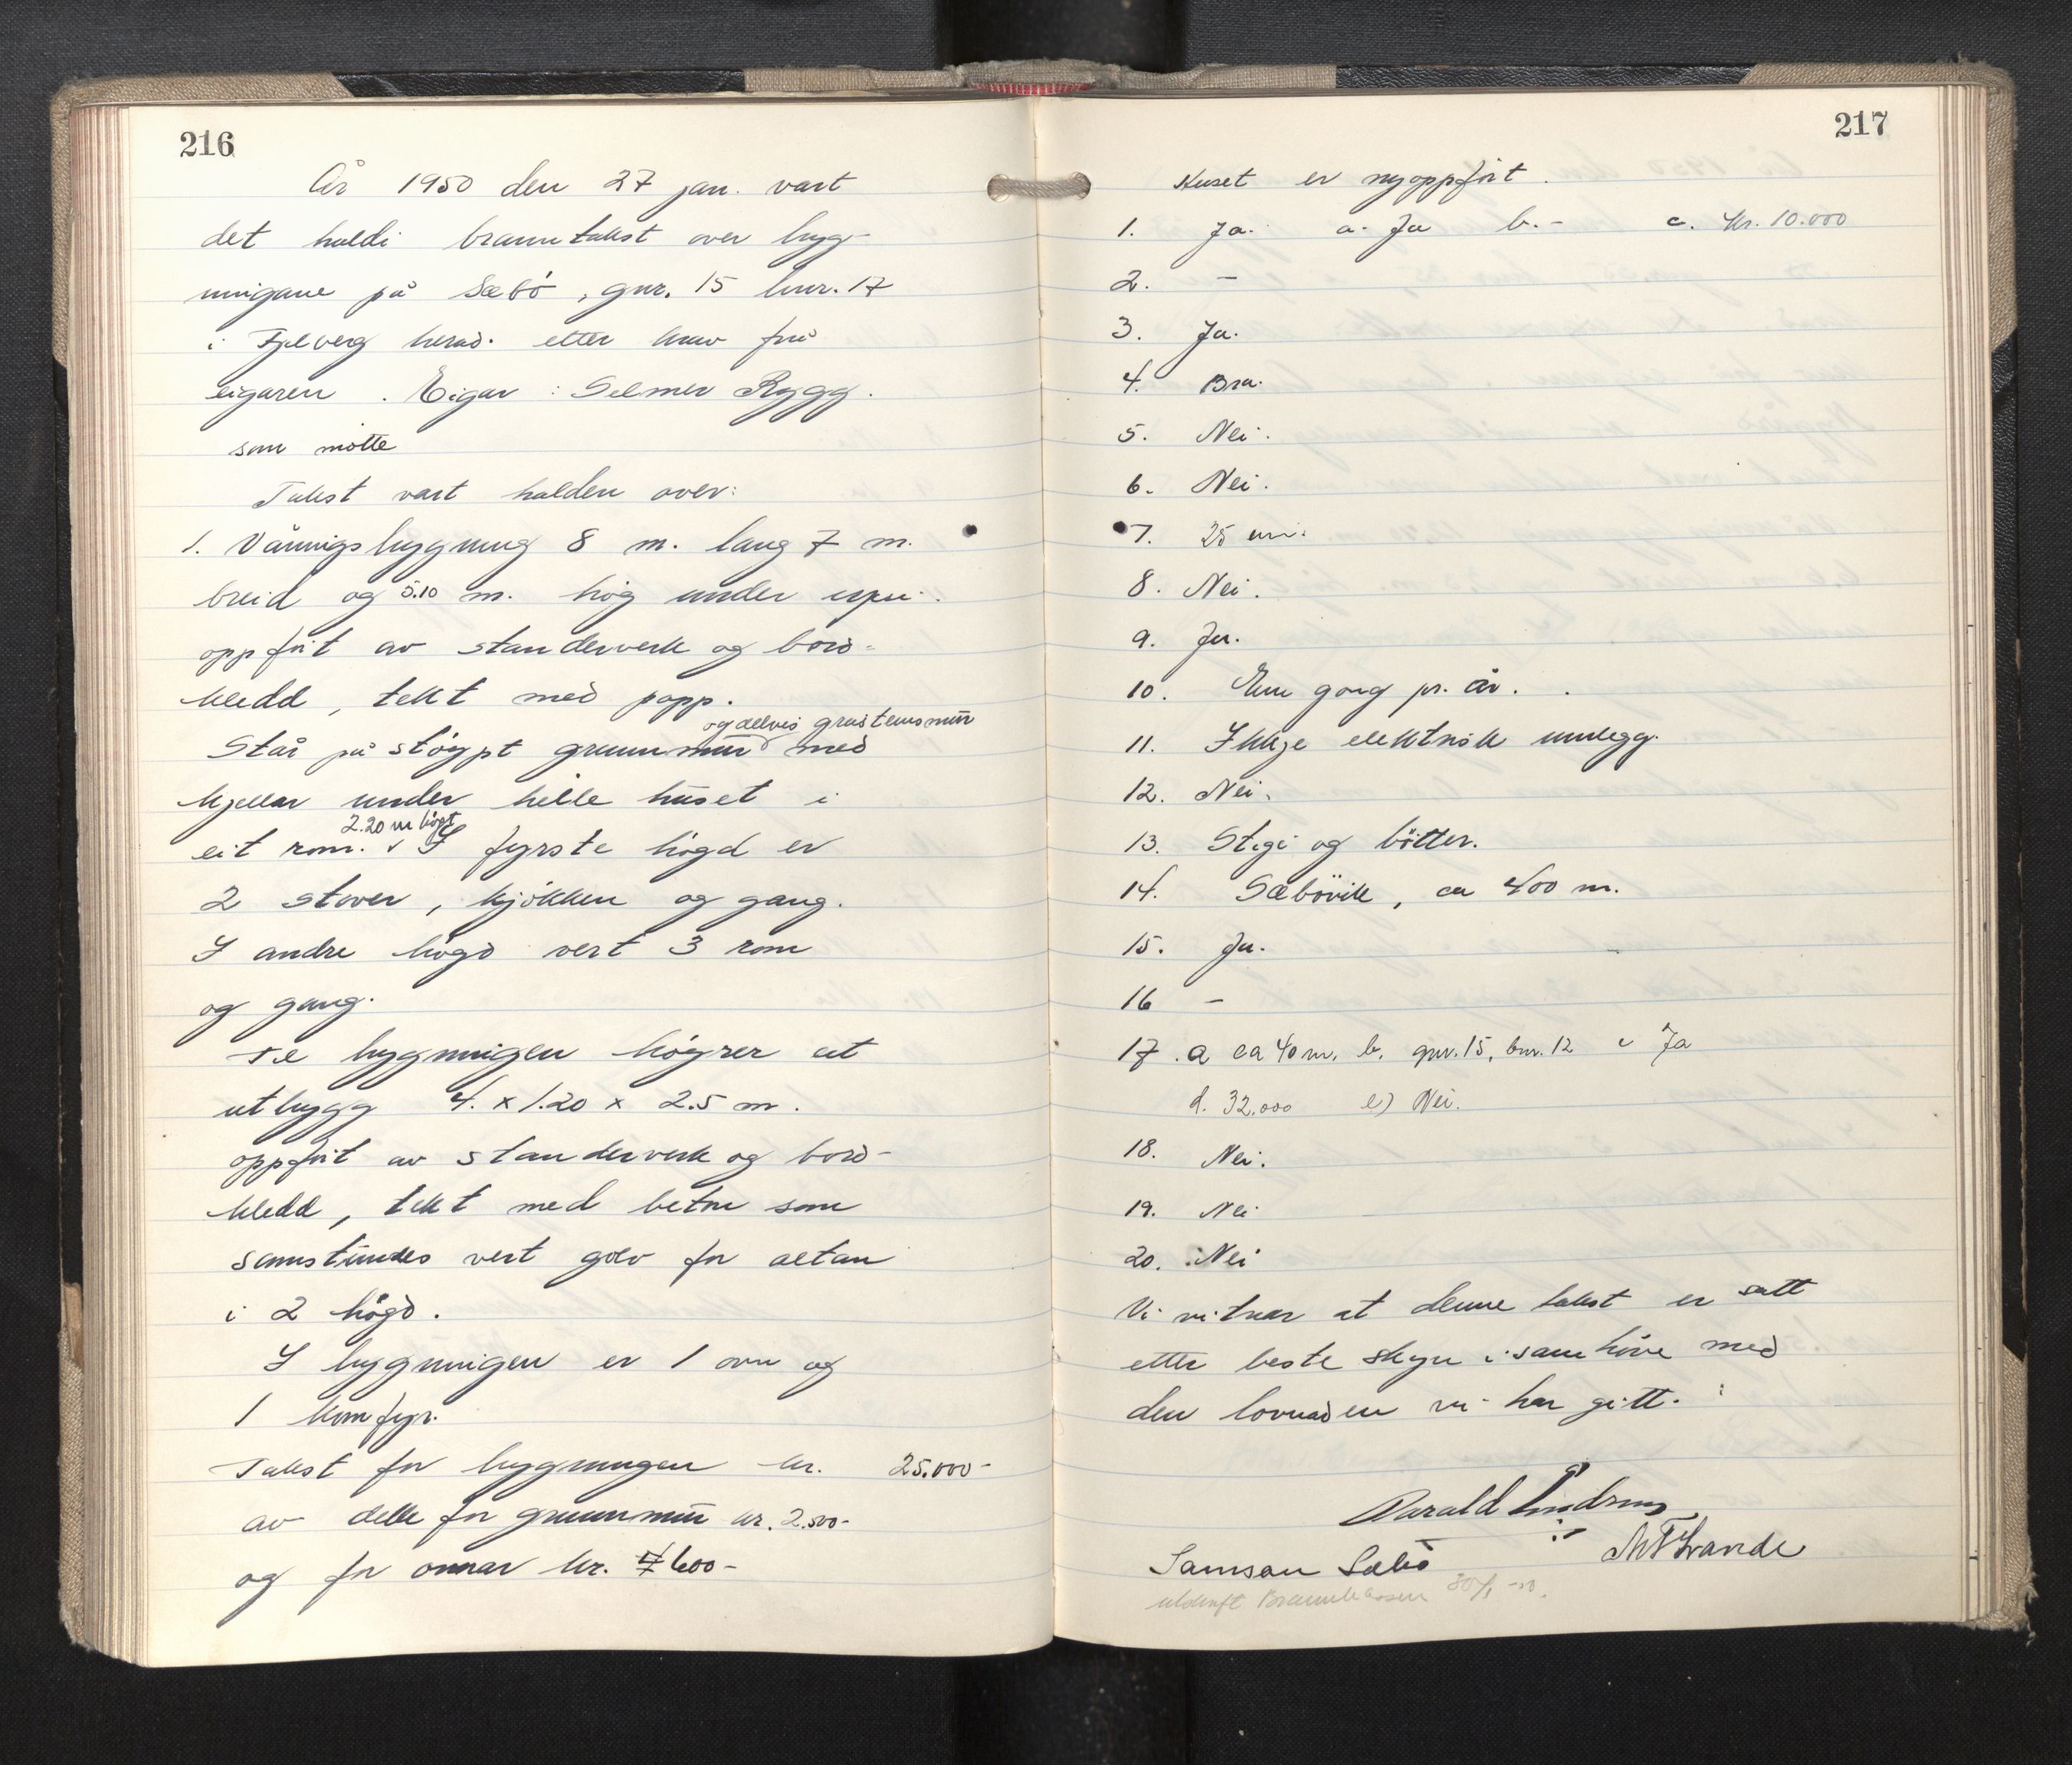 216
År 1950 den 27 jan. vart
det haldi branntakst over byg-
nigane på Sæbö, gnr. 15 bnr. 17
i Fjelberg herad. etter krav frå
eigaren. Eigar: Selmer Rygg.
som møtte
Takst vart halden over:
1. Våningsbygning 8 m. lang 7 m.
breid og 5.10 m. høg under
oppført av standerverk og bord-
kledd, tekt med papp.
og delvis gråsteinsmür
Står på støypt grunnmür med
kjellar under heile hüset i
2.20 m høgt
eit rom. I fyrste høgd er
2 stover, kjökken og gang.
I andre høgd vert 3 rom
og gang.
Til bygningen høyrer eit
utbygg 4. x 1.20 x 2.5 m.
oppført av standerverk og bord-
kledd, tekt med betong som
samstundes vert golv for altan
i 2 høgd.
I bygningen er 1 omn og
1 komfyr.
Takst for bygningen kr. 25.000-
av dette for grunnmür kr. 2.500-
og for omnar kr. 600-
217
Huset er nyoppført.
1. Ja. a. Ja b. - c. Kr. 10.000
2. -
3. Ja.
4. Bra.
5. Nei.
6. Nei.
7. 25 cm.
8. Nei.
9. Ja.
10. Ein gong pr. år.
11. Ikkje elektrisk innlegg.
12. Nei.
13. Stigi og bötter.
14. Sæbövik, ca 400 m.
15. Ja.
16 -
17. a ca 40 m. b. gnr. 15, bnr. 12 c Ja
d. 32.000 e) Nei.
18. Nei.
19. Nei
20. Nei
Vi vitnar at denne takst er sett
etter beste skyn i samhöve med
den lovnaden vi har gitt.
Samson Sæbö
utskrift Brannkassen 30/1 -50.